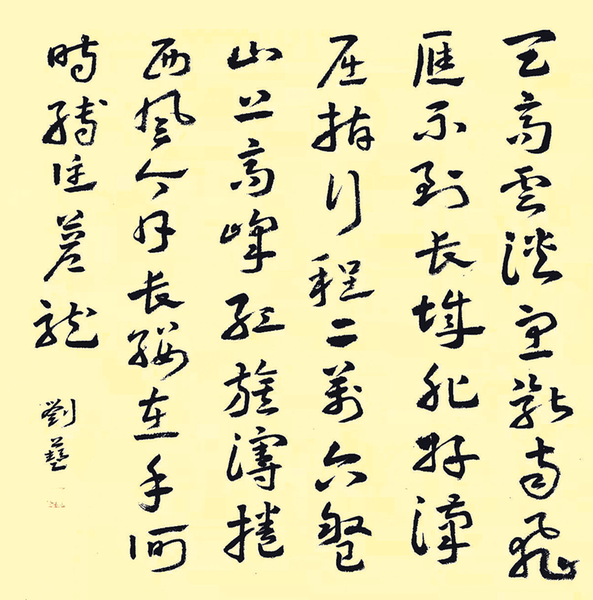 天高雲淡望斷南飛
雁不到長城非好漢
屈指行程二萬六盤
山上高峰紅旗漫捲
西風今日長纓在手何
時縛住蒼龍
劉藝